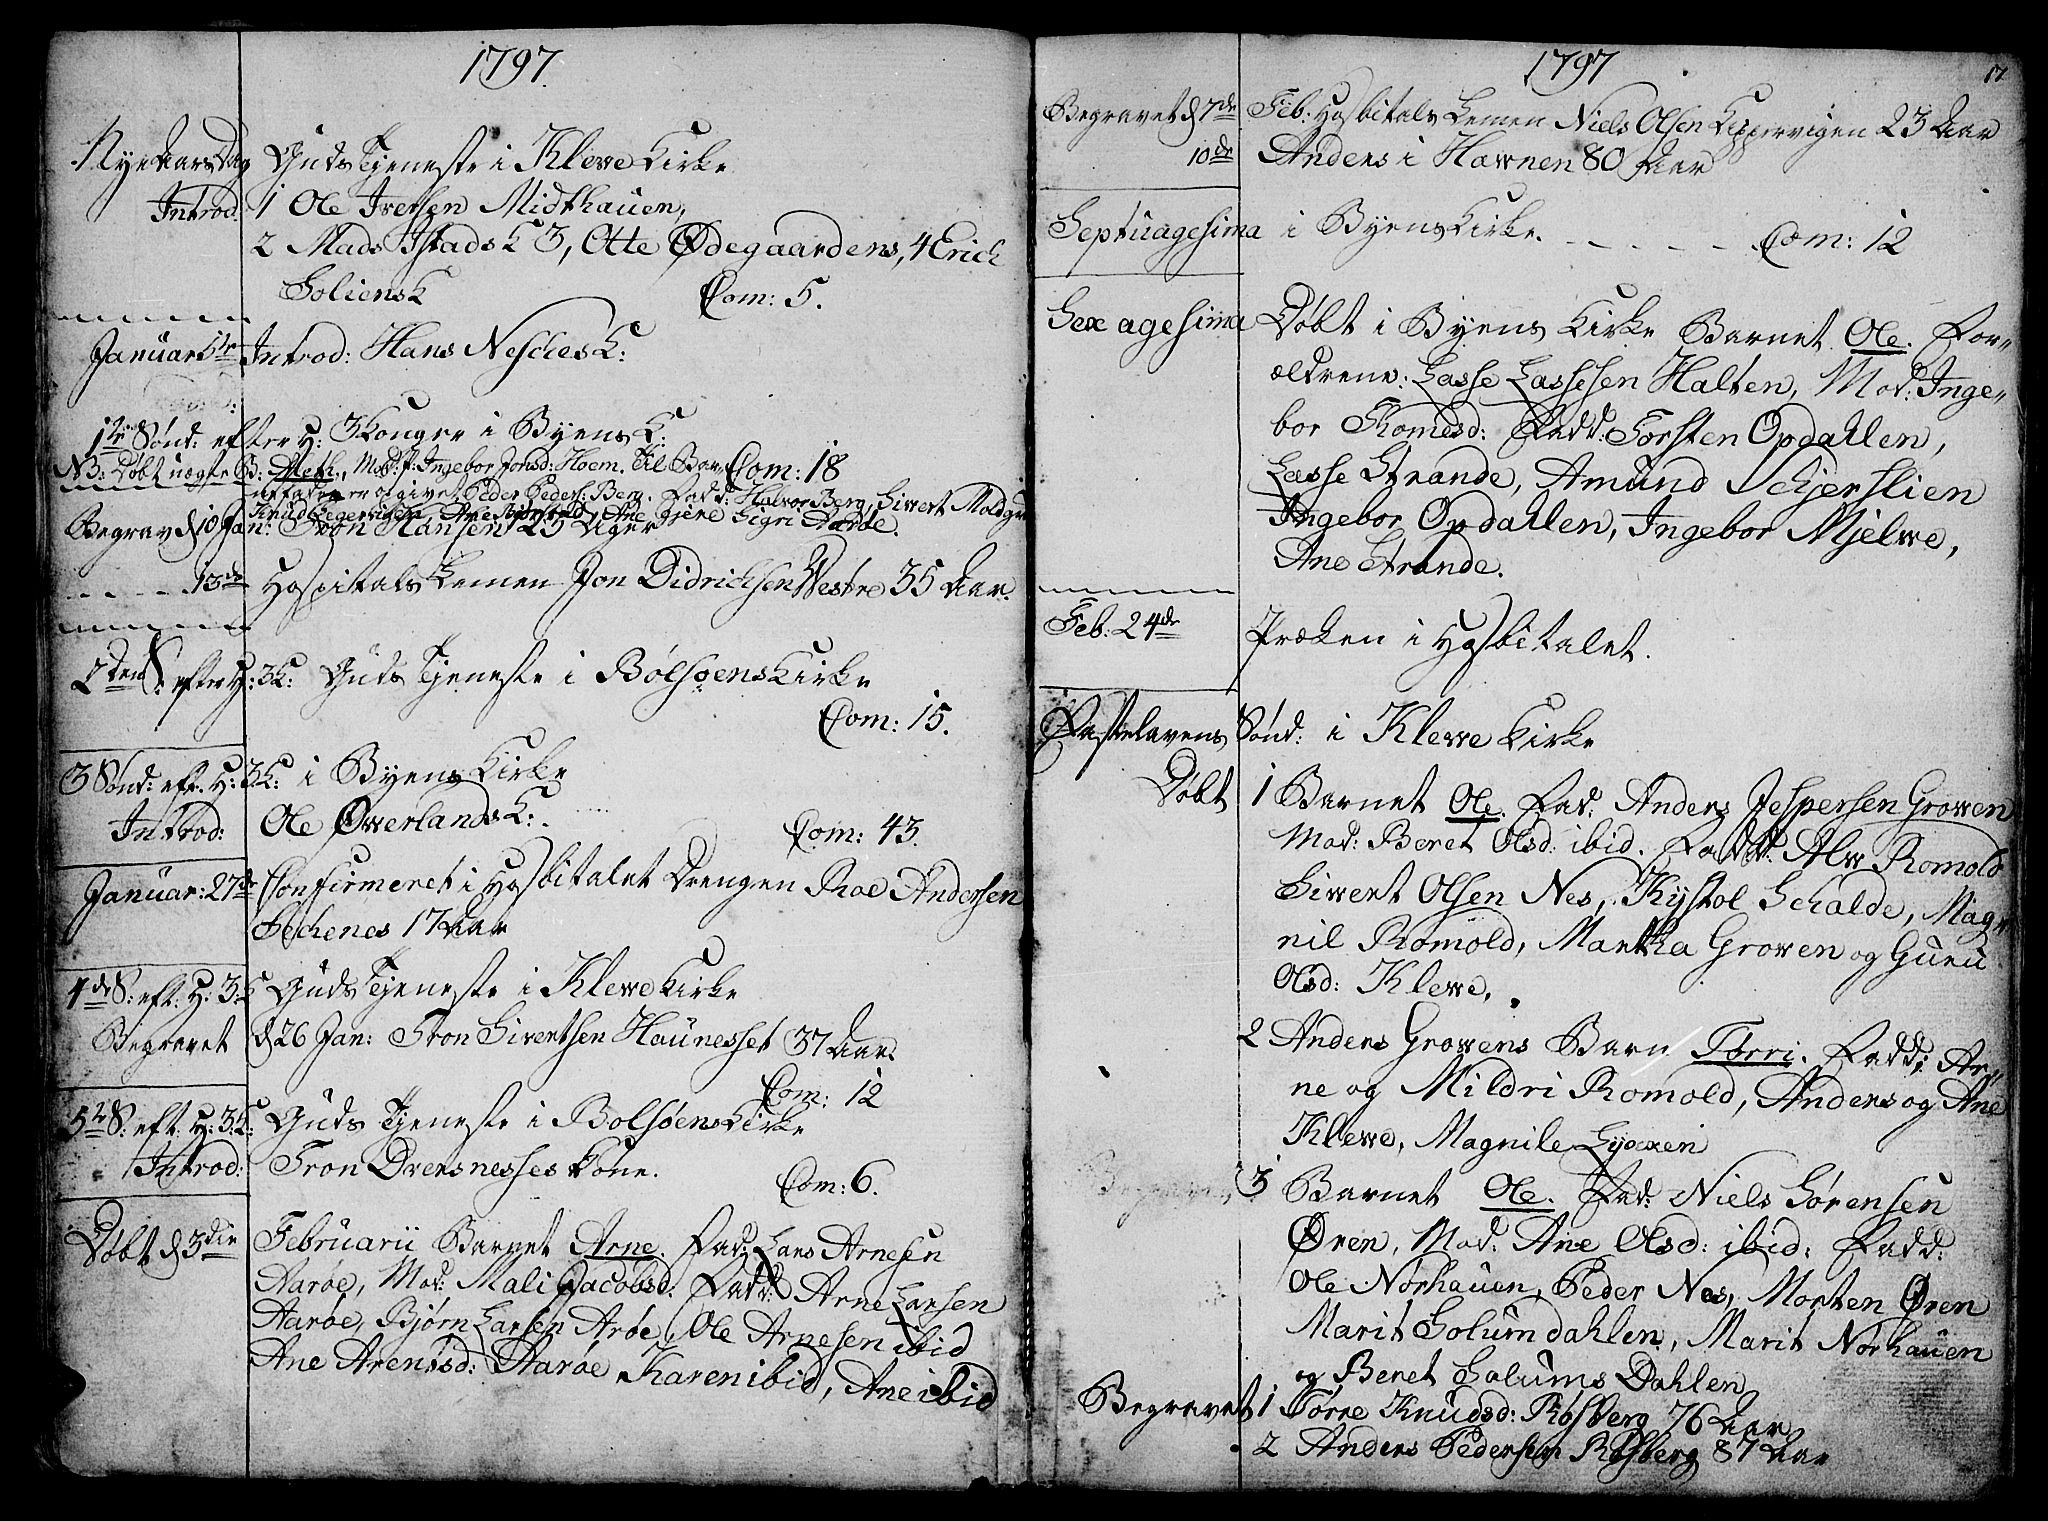 1797.
Nye Aars Dag Guds Tjeneste i Klewe Kirke
Introd. 1 Ole Iversen Midthauen,
2 Mads Istads K 3, Otte Ødegaardens, 4 Erich
Soliens K Com: 5.
Januar 5te Introd: Hans Nesches K:
1te Sønd: efter H: 3 Kongr i Byens K:
NB: Døbt uægte B: Meth., Mod: f: Ingebor Jonsd: Hoem. Til Bar Com: 18
uefader er opgivet Peder Peders: Berg. Fadd: Halvor Berg, Siwert Moldg
Knud, Ane, Ane Sigri
Begrav d 10 Jan: Iwon Hansen 25 Uger
13de Hospitals Lemen Jon Didrichsen Westre 35 Aar.
2den S: efter H: 3 K: Guds Tjeneste i Bolsøens Kirke
Com: 15.
3 Sønd: eft: H: 3 K: i Byens Kirke
Introd: Ole Øwerlands K: Com: 43.
Januar: 27de Confirmeret i Hosbitalet Drengen Roe Andersen
Techenes 17 Aar
4de S: eft: H: 3 K Guds Tjeneste i Klewe Kirke
Begravet d 26 Jan: Tron Sivertsen Haunesset 37 Aar.
Com: 12
5te S: eft: H: 3 K: Guds Tjeneste i Bolsøens Kirke
Introd: Tron Drersnesses Kone. Com: 6.
Døbt d 3die Februarii Barnet Arne. Fad: Lars Arnesen
Aarøe, Mod: Mali Jacobsd. Fadd: Arne Larsen
Aarøe, Bjørn Larsen Arøe, Ole Arnesen ibid
Ane Arentsd: Aarøe, Karen ibid, Ane ibid
1797 17
Begravet d 7de Feb: Hosbitals Lemen Niels Olsen Keppervigen 23 Aar
10de Anders i Hawnen 80 Aar
Septuagesima i Byens Kirke. Com: 12
Sexagesima Døbt i Byens Kirke Barnet Ole. For-
ældrene: Lasse Lassesen Halten, Mod: Inge-
bor Thomesd: Fadd: Torsten Opdahlen,
Lasse Strande, Amund Schjerslien
Ingebor Opdahlen, Ingebor Mjelwe,
Ane Strande.
Feb: 24de Præken i Hosbitalet.
Fastelavens Sønd: i Klewe Kirke
Døbt 1 Barnet Ole. Fad: Anders Jespersen Growen
Mod: Beret Olsd: ibid. Fadd: Alw Romold
Siwert Olsen Nes, Kystol Schalde, Mag-
nil Romold, Martha Growen og Guru
Olsd: Klewe.
2 Anders Growens Barn Torri. Fadd: Ar-
ne og Mildri Romold, Anders og Ane
Klewe, Magnile Lyxxen
3 Barnet Ole. Fad: Niels Sørensen
Øren, Mod: Ane Olsd: ibid: Fadd:
Ole Nørhauen, Peder Nes, Morten Øren
Marit Solumdahlen, Marit Nørhauen
og Beret Solums Dahlen
Begravet 1 Torre Knudsd: Røsberg 76 Aar
2 Anders Pedersen Røsberg 87 Aar